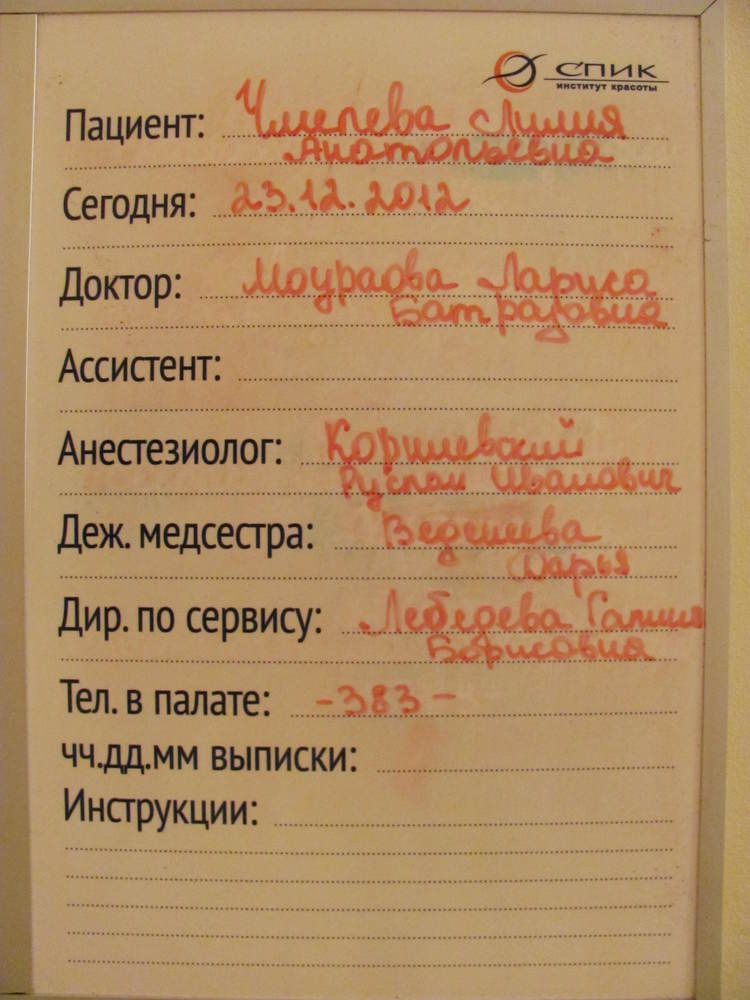 СПИК
институт красоты
Пациент: Чмелева Лилия
Анатольевна
Сегодня: 23.12.2012
Доктор: Моураова Лариса
Батразовна
Ассистент:
Анестезиолог: Коришевский
Руслан Иванович
Деж. медсестра: Веденеева
Дарья
Дир. по сервису: Лебедева Галина
Борисовна
Тел. в палате: -383-
чч.дд.мм выписки:
Инструкции: